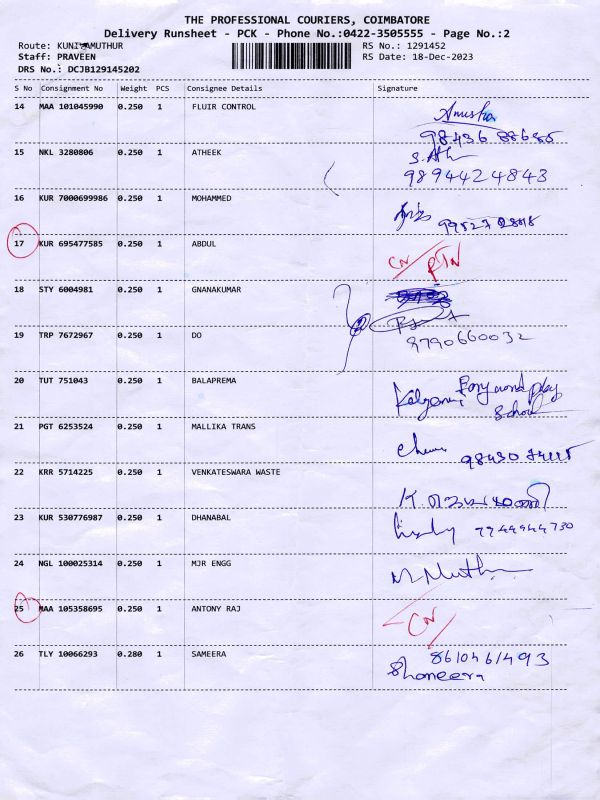 THE PROFESSIONAL COURIERS, COIMBATORE
Delivery Runsheet - PCK - Phone No.:0422-3505555 - Page No.:2
Route: KUNIYAMUTHUR
RS No.: 1291452
Staff: PRAVEEN
RS Date: 18-Dec-2023
DRS No.: DCJB129145202
S No Consignment No Weight PCS Consignee Details Signature
14 MAA 101045990 0.250 1 FLUIR CONTROL Anusha
15 NKL 3280806 0.250 1 ATHEEK
9894424843
16 KUR 7000699986 0.250 1 MOHAMMED
17 KUR 695477585 0.250 1 ABDUL CN RTN
18 STY 6004981 0.250 1 GNANAKUMAR
19 TRP 7672967 0.250 1 DO 9790660032
20 TUT 751043 0.250 1 BALAPREMA play
School
21 PGT 6253524 0.250 1 MALLIKA TRANS
22 KRR 5714225 0.250 1 VENKATESWARA WASTE
23 KUR 530776987 0.250 1 DHANABAL
24 NGL 100025314 0.250 1 MJR ENGG
25 MAA 105358695 0.250 1 ANTONY RAJ CN
26 TLY 10066293 0.280 1 SAMEERA 8610461493
Shameera